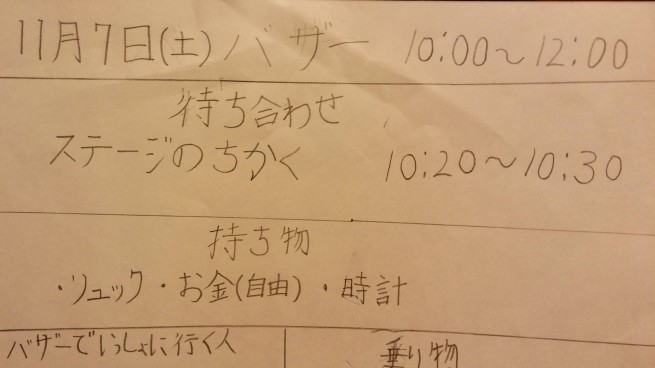 11月7日(土)バザー 10:00〜12:00
待ち合わせ
ステージのちかく 10:20〜10:30
持ち物
・リュック・お金(自由)・時計
バザーでいっしょに行く人 乗り物